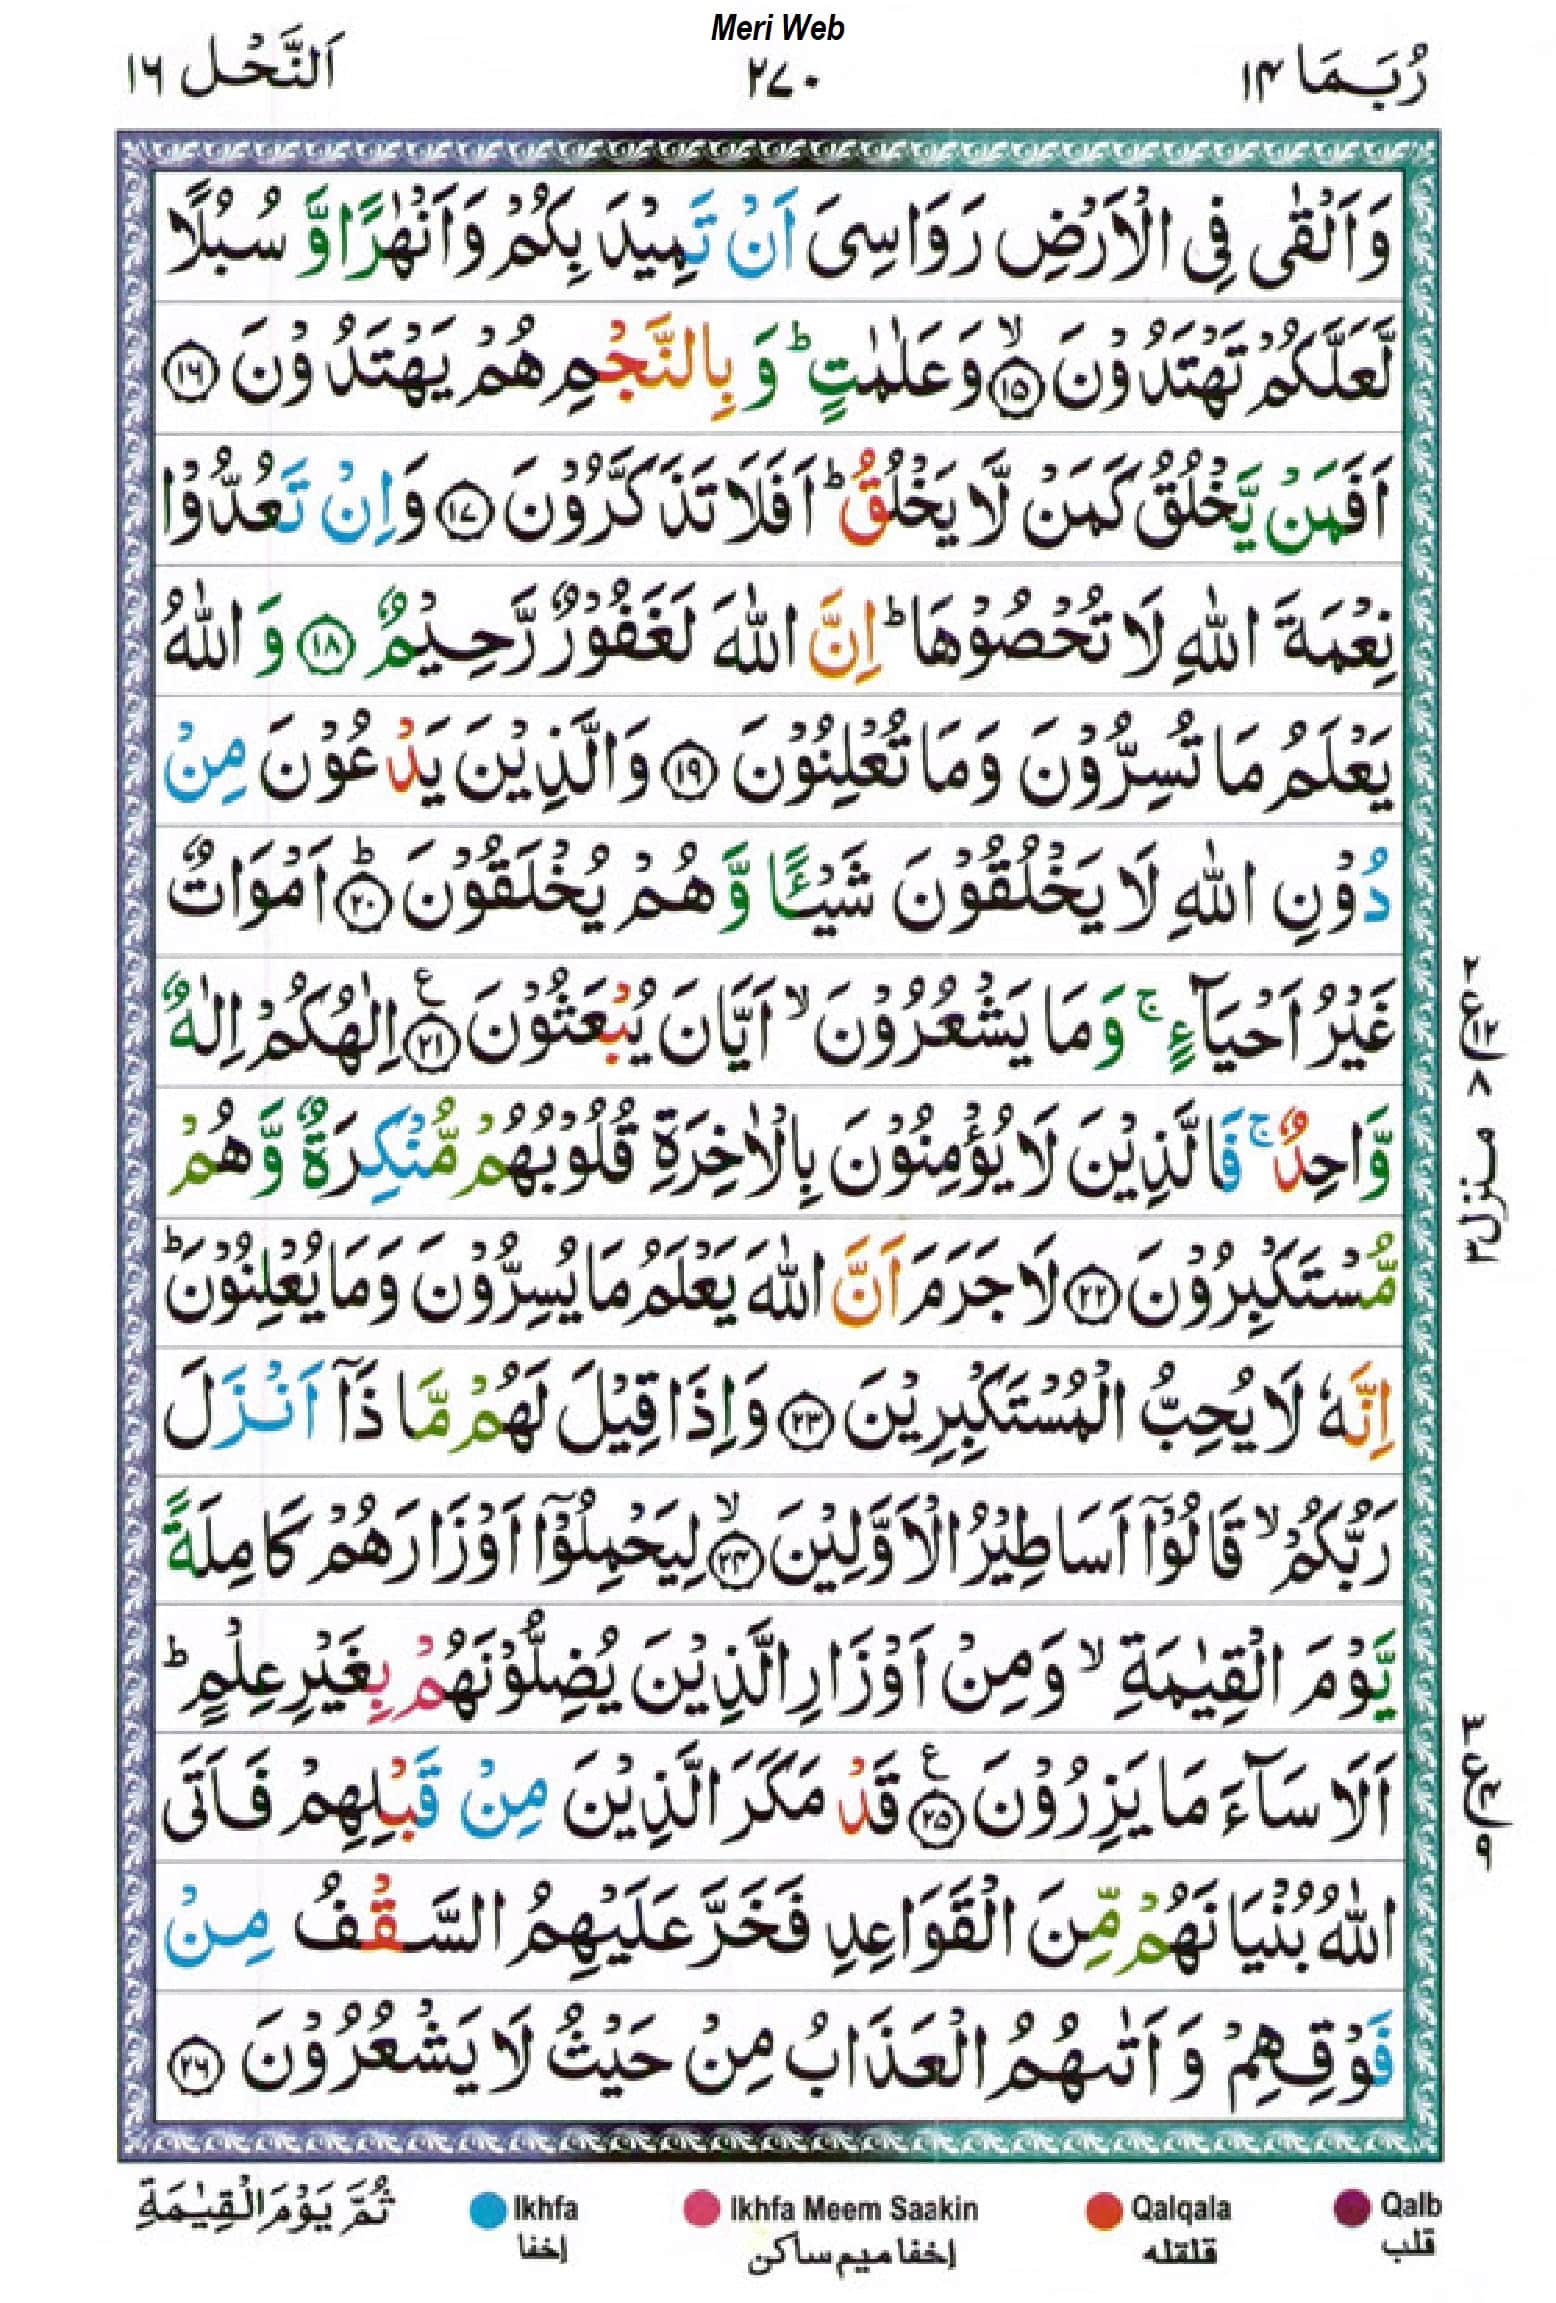 Meri Web
رُبَمَا ١٤
٢٧٠
اَلنَّحْل ١٦
وَاَلْقٰى فِى الْاَرْضِ رَوَاسِىَ اَنْ تَمِيْدَ بِكُمْ وَاَنْهٰرًا وَّ سُبُلًا
لَّعَلَّكُمْ تَهْتَدُوْنَ ۙ‏﴿۱۵﴾ وَعَلٰمٰتٍ ؕ وَ بِالنَّجْمِ هُمْ يَهْتَدُوْنَ ﴿۱۶﴾
اَفَمَنْ يَّخْلُقُ كَمَنْ لَّا يَخْلُقُ ؕ اَفَلَا تَذَكَّرُوْنَ ﴿۱۷﴾ وَاِنْ تَعُدُّوْا
نِعْمَةَ اللّٰهِ لَا تُحْصُوْهَا ؕ اِنَّ اللّٰهَ لَغَفُوْرٌ رَّحِيْمٌ ﴿۱۸﴾ وَ اللّٰهُ
يَعْلَمُ مَا تُسِرُّوْنَ وَمَا تُعْلِنُوْنَ ﴿۱۹﴾ وَالَّذِيْنَ يَدْعُوْنَ مِنْ
دُوْنِ اللّٰهِ لَا يَخْلُقُوْنَ شَيْـًٔا وَّ هُمْ يُخْلَقُوْنَ ؕ ﴿۲۰﴾ اَمْوَاتٌ
غَيْرُ اَحْيَآءٍ ۚ وَ مَا يَشْعُرُوْنَ ۙ اَيَّانَ يُبْعَثُوْنَ ﴿۲۱﴾ ع اِلٰهُكُمْ اِلٰهٌ
وَّاحِدٌ ۚ فَالَّذِيْنَ لَا يُؤْمِنُوْنَ بِالْاٰخِرَةِ قُلُوْبُهُمْ مُّنْكِرَةٌ وَّهُمْ
مُّسْتَكْبِرُوْنَ ﴿۲۲﴾ لَا جَرَمَ اَنَّ اللّٰهَ يَعْلَمُ مَا يُسِرُّوْنَ وَمَا يُعْلِنُوْنَ ؕ
اِنَّهٗ لَا يُحِبُّ الْمُسْتَكْبِرِيْنَ ﴿۲۳﴾ وَاِذَا قِيْلَ لَهُمْ مَّا ذَاۤ اَنْزَلَ
رَبُّكُمْ ۙ قَالُوْۤا اَسَاطِيْرُ الْاَوَّلِيْنَ ۙ ﴿۲۴﴾ لِيَحْمِلُوْۤا اَوْزَارَهُمْ كَامِلَةً
يَّوْمَ الْقِيٰمَةِ ۙ وَمِنْ اَوْزَارِ الَّذِيْنَ يُضِلُّوْنَهُمْ بِغَيْرِ عِلْمٍ ؕ
اَلَا سَآءَ مَا يَزِرُوْنَ ﴿۲۵﴾ ع قَدْ مَكَرَ الَّذِيْنَ مِنْ قَبْلِهِمْ فَاَتَى
اللّٰهُ بُنْيَانَهُمْ مِّنَ الْقَوَاعِدِ فَخَرَّ عَلَيْهِمُ السَّقْفُ مِنْ
فَوْقِهِمْ وَ اَتٰٮهُمُ الْعَذَابُ مِنْ حَيْثُ لَا يَشْعُرُوْنَ ﴿۲۶﴾
٢
ع
١٢
٨
منزل ٣
٣
ع
٤
٩
ثُمَّ يَوْمَ الْقِيٰمَةِ
Ikhfa
إخفا
Ikhfa Meem Saakin
إخفا ميم ساكن
Qalqala
قلقله
Qalb
قلب